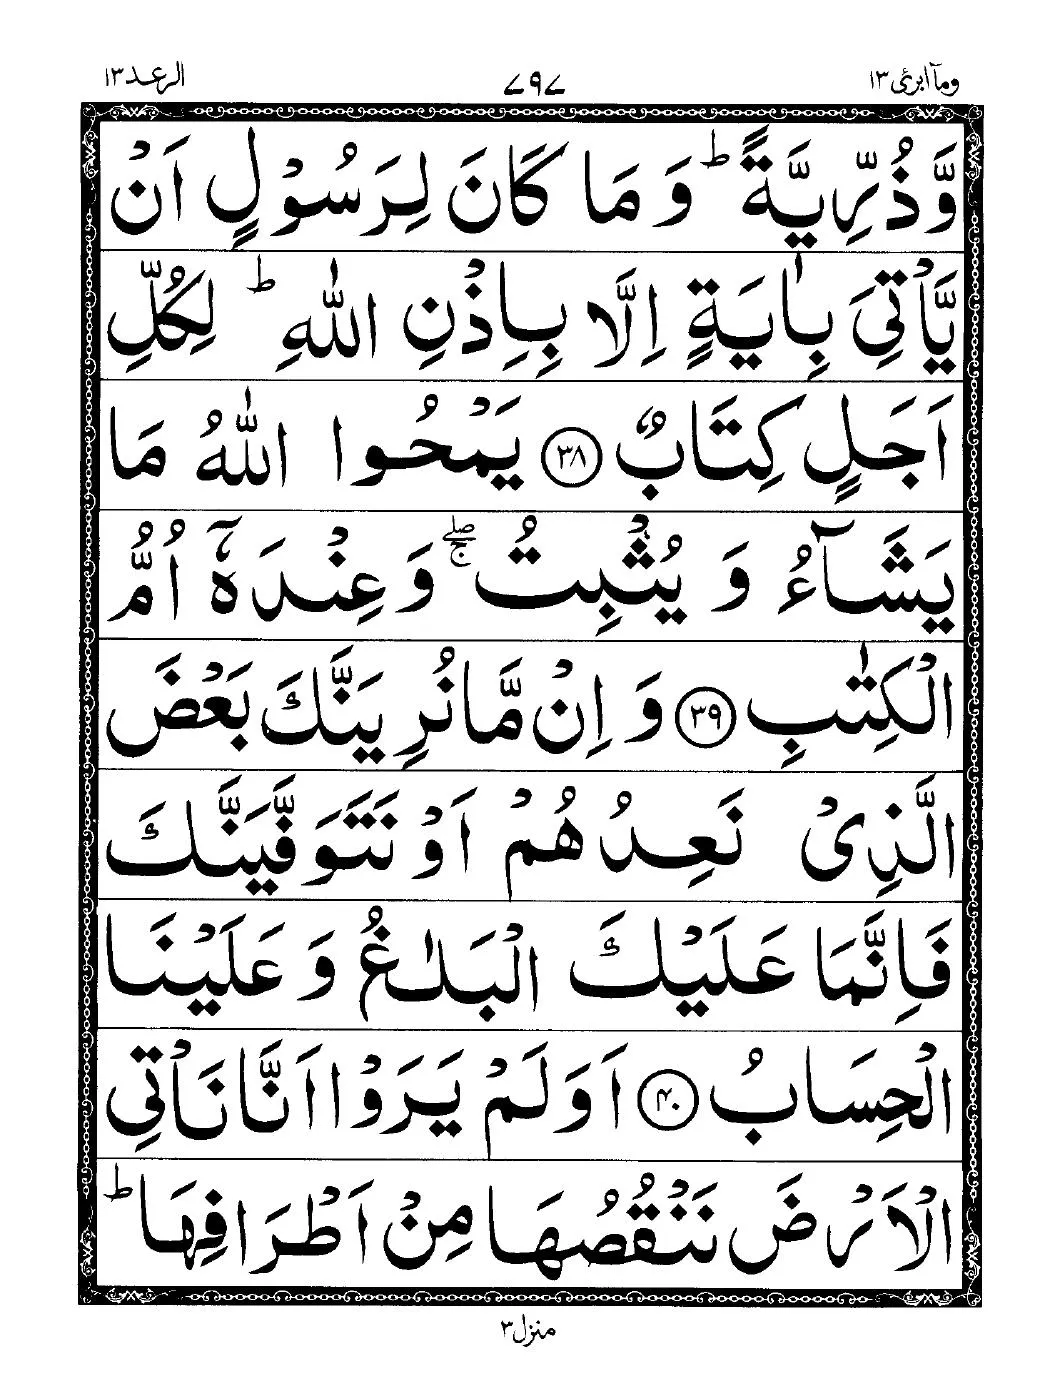 وماۤ ابرئ ١٣
٧٩٧
الرعد ١٣
وَّ ذُرِّيَّةً ؕ وَ مَا كَانَ لِرَسُوْلٍ اَنْ
يَّاْتِىَ بِاٰيَةٍ اِلَّا بِاِذْنِ اللّٰهِ ؕ لِكُلِّ
اَجَلٍ كِتَابٌ ﴿٣٨﴾ يَمْحُوا اللّٰهُ مَا
يَشَآءُ وَ يُثْبِتُ ۖۚ وَ عِنْدَهٗۤ اُمُّ
الْكِتٰبِ ﴿٣٩﴾ وَ اِنْ مَّا نُرِيَنَّكَ بَعْضَ
الَّذِىْ نَعِدُهُمْ اَوْ نَتَوَفَّيَنَّكَ
فَاِنَّمَا عَلَيْكَ الْبَلٰغُ وَ عَلَيْنَا
الْحِسَابُ ﴿۴۰﴾ اَوَلَمْ يَرَوْا اَنَّا نَاْتِى
الْاَرْضَ نَنْقُصُهَا مِنْ اَطْرَافِهَا ؕ
منزل ٣